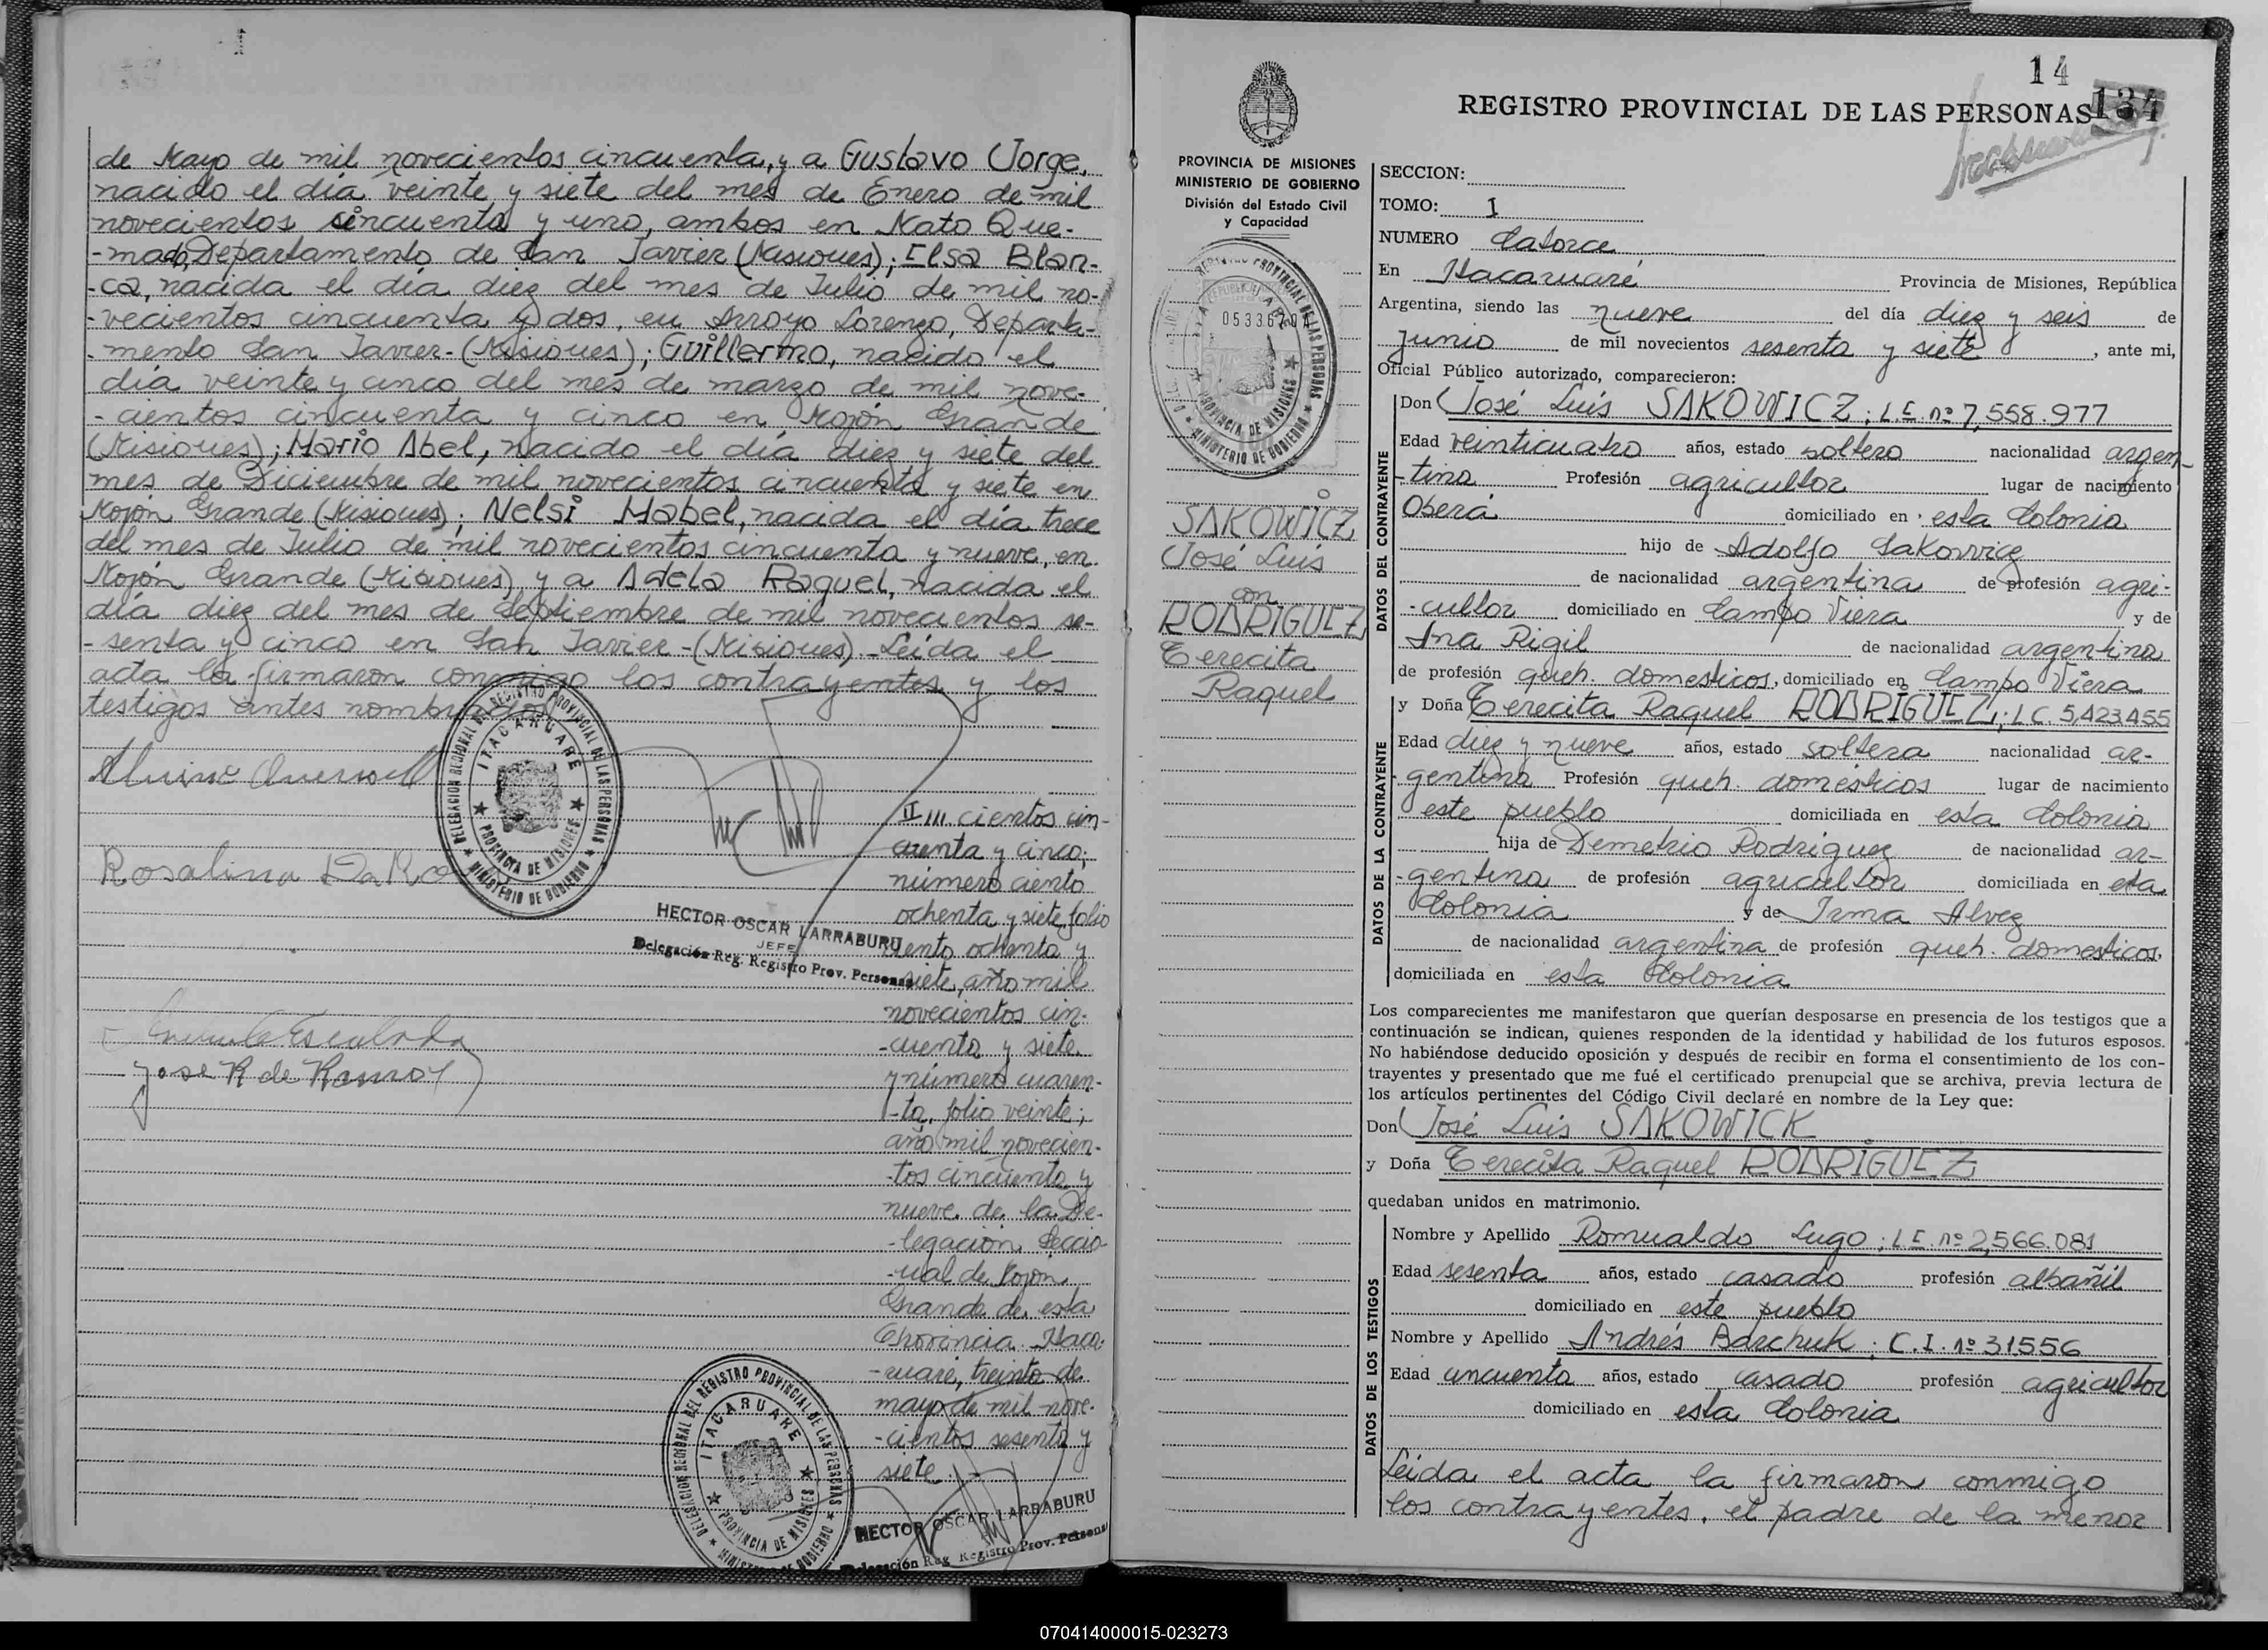 de Mayo de mil novecientos cincuenta, y a Gustavo Jorge,
nacido el día veinte y siete del mes de Enero de mil
novecientos cincuenta y uno, ambos en Mato Que-
-mado, Departamento de San Javier (Misiones); Elsa Blan-
-ca, nacida el día diez del mes de Julio de mil no-
-vecientos cincuenta y dos, en Arroyo Lorenzo, Departa-
-mento San Javier-(Misiones); Guillermo, nacido el
día veinte y cinco del mes de marzo de mil nove-
-cientos cincuenta y cinco en Mojón Grande
(Misiones); Mario Abel, nacido el día diez y siete del
mes de Diciembre de mil novecientos cincuenta y siete en
Mojón Grande (Misiones); Nelsi Mabel, nacida el día trece
del mes de Julio de mil novecientos cincuenta y nueve, en
Mojón Grande (Misiones) y a Adela Raquel, nacida el
día diez del mes de Septiembre de mil novecientos se-
-senta y cinco en San Javier-(Misiones)-Leída el
acta la firmaron conmigo los contrayentes y los
testigos antes nombrados
DELEGACION REGIONAL DEL REGISTRO PROVINCIAL DE LAS PERSONAS
ITACARUARE
PROVINCIA DE MISIONES
MINISTERIO DE GOBIERNO
Rosalina Da Ro
HECTOR OSCAR LARRABURU
JEFE
Delegación Reg. Registro Prov. Personas
Escalada
Jose R de Ramos
II III cientos cin-
cuenta y cinco;
número ciento
ochenta y siete folio
ciento ochenta y
siete, año mil
novecientos cin-
-cuenta y siete
y número cuaren-
-ta, folio veinte;
año mil novecien-
-tos cincuenta y
nueve de la De-
-legación Seccio-
-nal de Mojon
Grande de esta
Provincia. Itaca-
-ruaré, treinta de
mayo de mil nove-
-cientos sesenta y
siete.
DELEGACION REGIONAL DEL REGISTRO PROVINCIAL DE LAS PERSONAS
ITACARUARE
PROVINCIA DE MISIONES
MINISTERIO DE GOBIERNO
HECTOR OSCAR LARRABURU
Delegación Reg Registro Prov. Persona
14
REGISTRO PROVINCIAL DE LAS PERSONAS
134
PROVINCIA DE MISIONES
MINISTERIO DE GOBIERNO
División del Estado Civil
y Capacidad
SAKOWICZ
José Luis
con
RODRIGUEZ
Terecita
Raquel
SECCION:
TOMO: I
NUMERO Catorce
En Itacaruaré Provincia de Misiones, República
Argentina, siendo las nueve del día diez y seis de
Junio de mil novecientos sesenta y siete, ante mi,
Oficial Público autorizado, comparecieron:
DATOS DEL CONTRAYENTE
Don José Luis SAKOWICZ; L.E. nº 7,558.977
Edad veinticuatro años, estado soltero nacionalidad argen-
-tina Profesión agricultor lugar de nacimiento
Oberá domiciliado en esta Colonia
hijo de Adolfo Sakowicz
de nacionalidad argentina de profesión agri-
-cultor domiciliado en Campo Viera y de
Ana Rigil de nacionalidad argentina
de profesión queh. domesticos, domiciliado en Campo Viera
DATOS DE LA CONTRAYENTE
y Doña Terecita Raquel RODRIGUEZ; L.C. 5,423.455
Edad diez y nueve años, estado soltera nacionalidad ar-
-gentina Profesión queh. domésticos lugar de nacimiento
este pueblo domiciliada en esta Colonia
hija de Demetrio Rodriguez de nacionalidad ar-
-gentina de profesión agricultor domiciliada en esta
Colonia y de Irma Alvez
de nacionalidad argentina de profesión queh. domesticos,
domiciliada en esta Colonia
Los comparecientes me manifestaron que querían desposarse en presencia de los testigos que a
continuación se indican, quienes responden de la identidad y habilidad de los futuros esposos.
No habiéndose deducido oposición y después de recibir en forma el consentimiento de los con-
trayentes y presentado que me fué el certificado prenupcial que se archiva, previa lectura de
los artículos pertinentes del Código Civil declaré en nombre de la Ley que:
Don José Luis SAKOWICK
y Doña Terecita Raquel RODRIGUEZ
quedaban unidos en matrimonio.
DATOS DE LOS TESTIGOS
Nombre y Apellido Romualdo Lugo; L.E. nº 2,566.081
Edad sesenta años, estado casado profesión albañil
domiciliado en este pueblo
Nombre y Apellido Andrés Barchuk; C.I. nº 31556
Edad cincuenta años, estado casado profesión agricultor
domiciliado en esta Colonia
Leída el acta la firmaron conmigo
los contrayentes, el padre de la menor
070414000015-023273